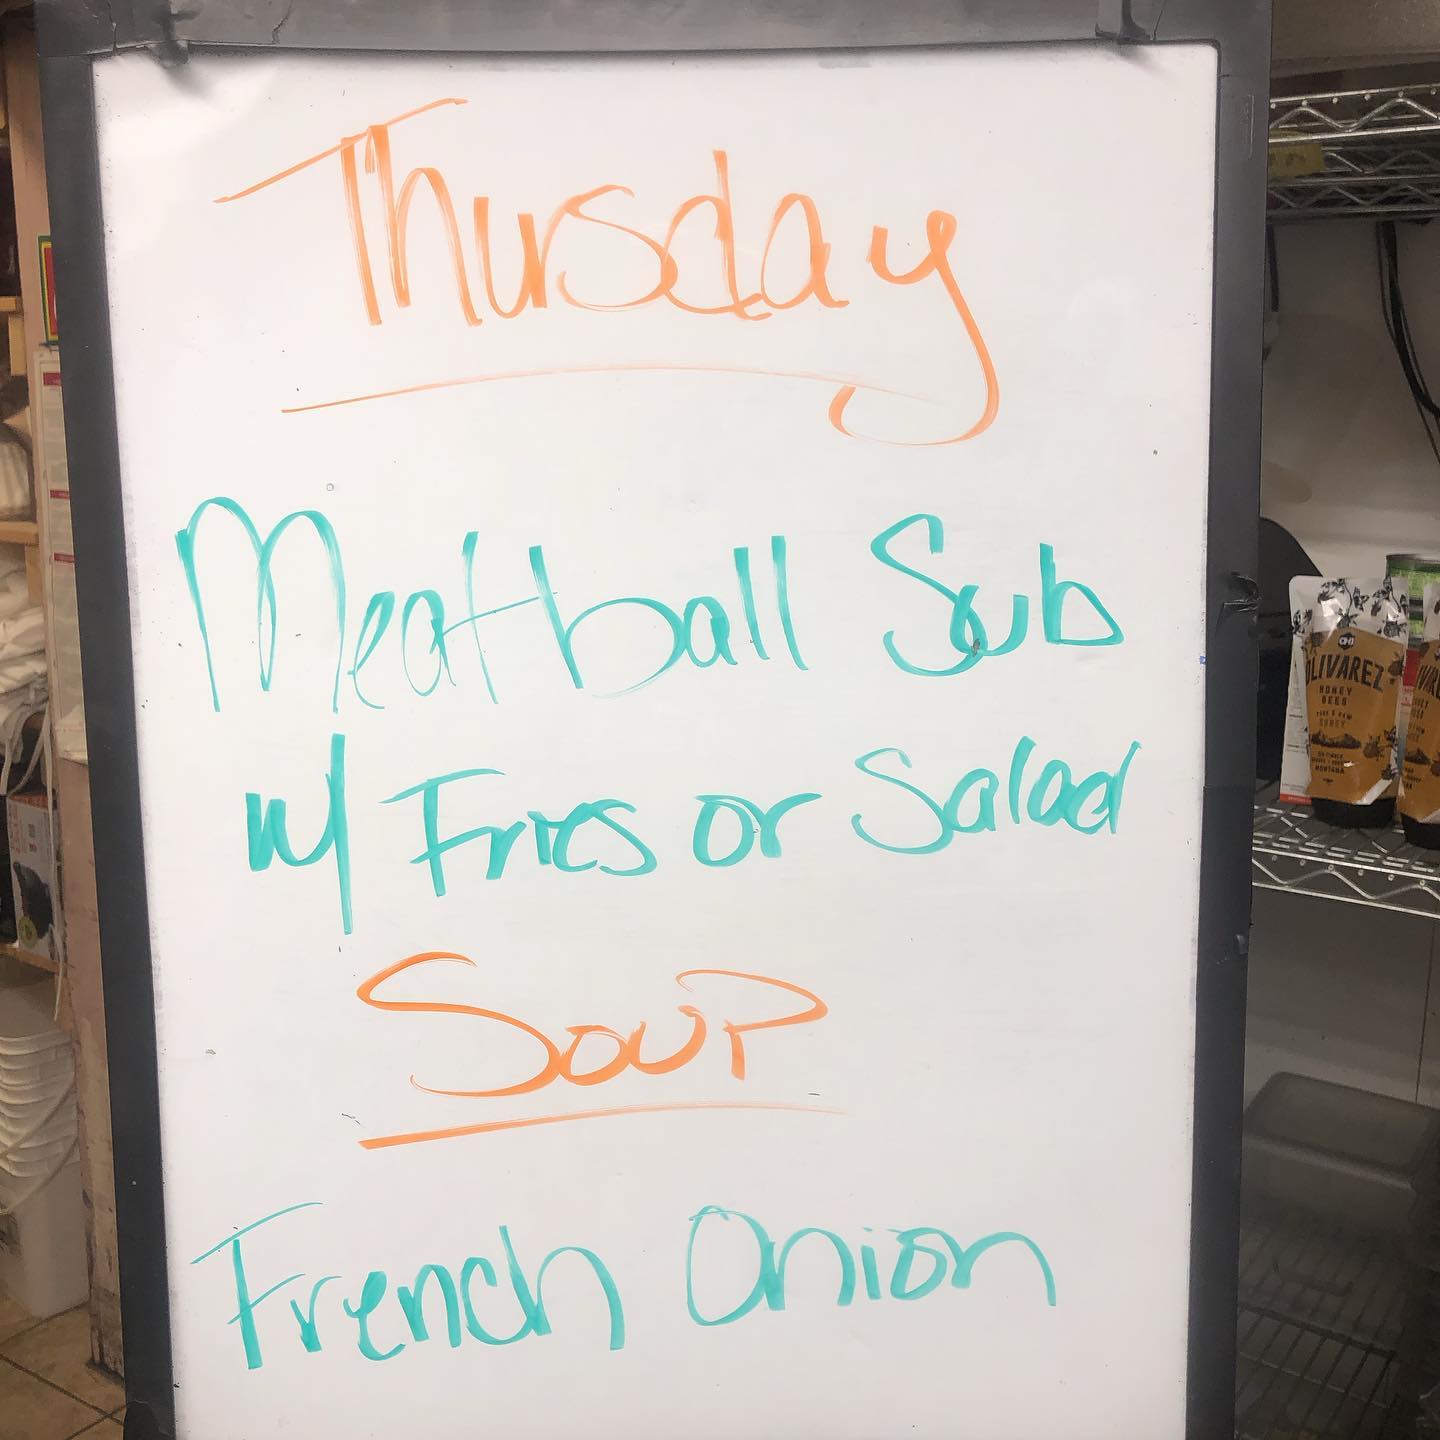 Thursday
Meatball Sub
w/ Fries or Salad
Soup
French Onion
OHB
OLIVAREZ
HONEY
BEES
MONTANA